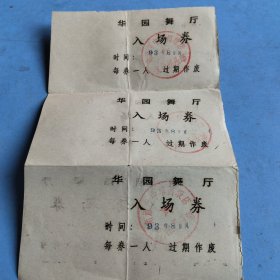 华园舞厅
入场券
时间：93年8月8
每券一人 过期作废
华园舞厅
入场券
时间：93年8月8
每券一人 过期作废
华园舞厅
入场券
时间：93年8月8
每券一人 过期作废